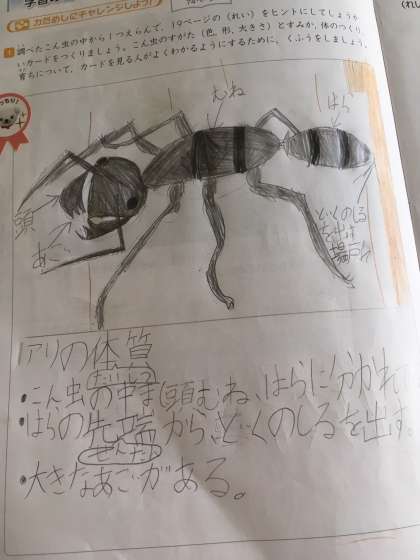 力だめしにチャレンジしよう！
1 調べたこん虫の中から1つえらんで、19ページの（れい）をヒントにしてしょうか
いカードをつくりましょう。こん虫のすがた（色、形、大きさ）とすみか、体のつくり、
育ちについて、カードを見る人がよくわかるようにするために、くふうをしましょう。
むね
はら
頭
あご
どくのしる
を出す
場戸斤
アリの体質
たいしつ
・こん虫の中ま（頭むね、はらに分かれ
・はらの先端から、どくのしるを出す。
せんたん
・大きなあごがある。